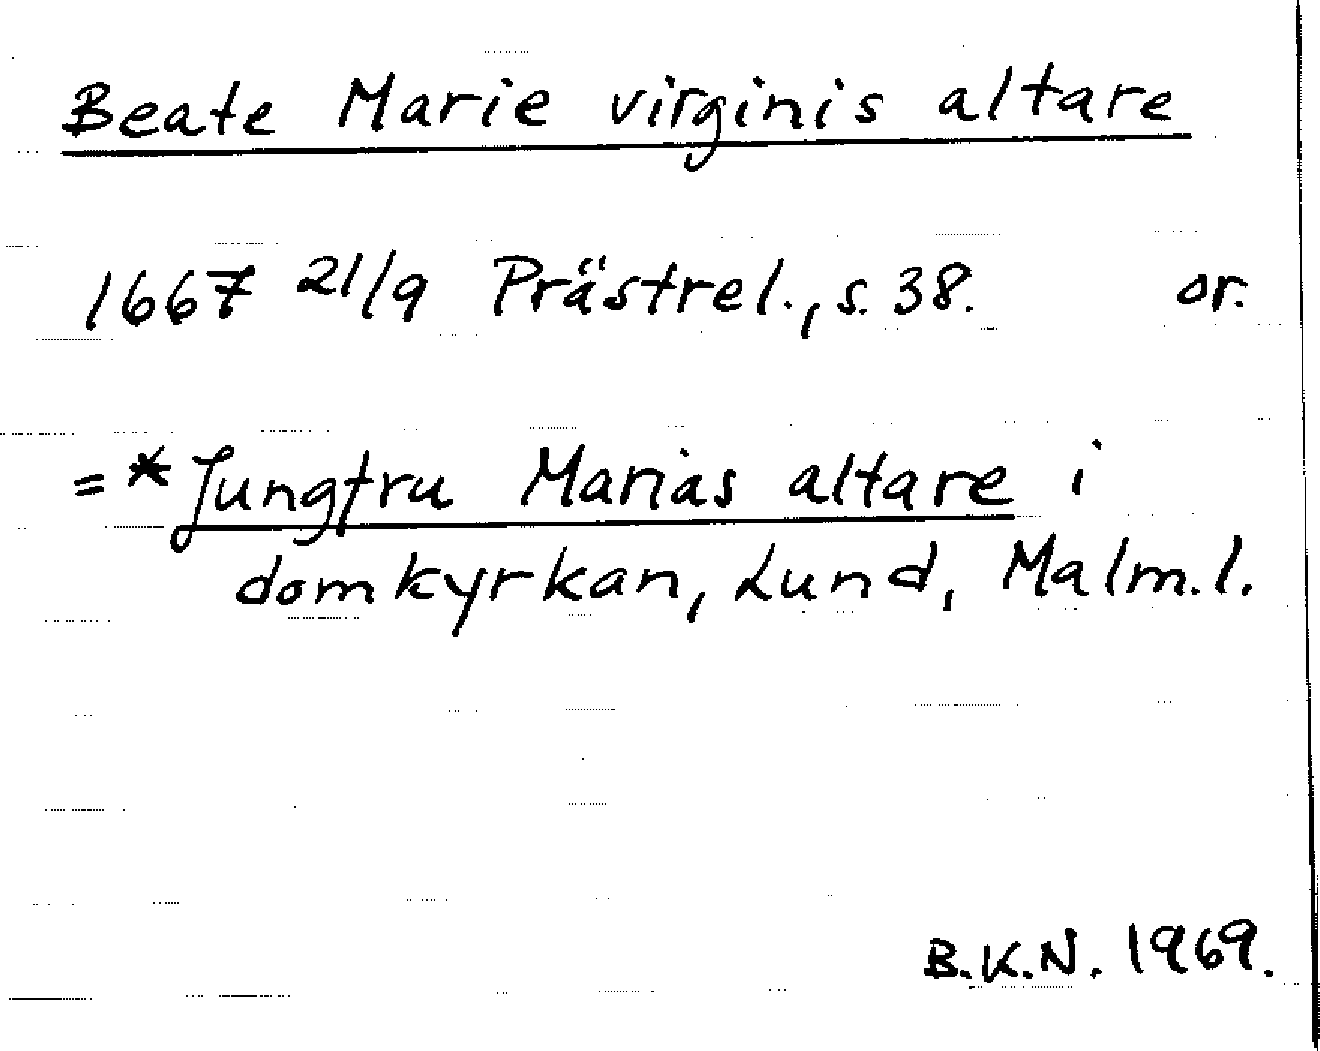 Beate Marie virginis altare
1667 21/9 Prästrel., s. 38. or.
= * Jungfru Marias altare i
domkyrkan, Lund, Malm. l.
B.K.N. 1969.